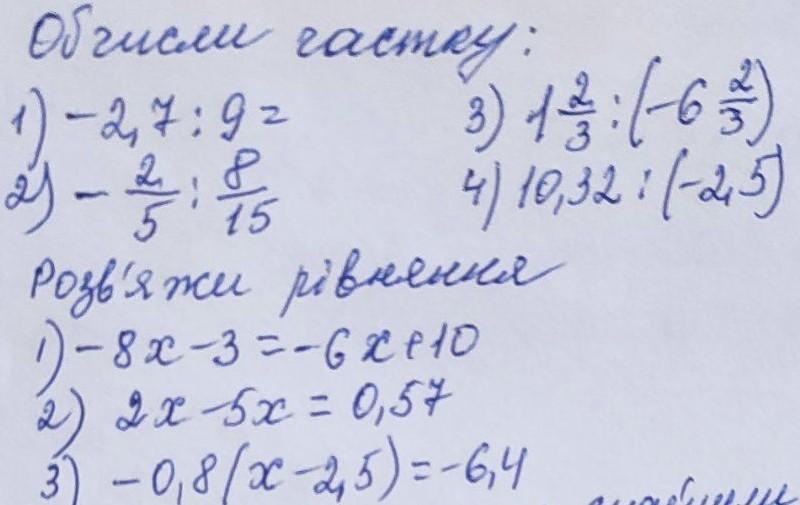 Обчисли частку:
1) -2,7 : 9 =
3) 1 2/3 : (-6 2/3)
2) - 2/5 : 8/15
4) 10,32 : (-2,5)
Розв'яжи рівняння
1) -8x - 3 = -6x + 10
2) 2x - 5x = 0,57
3) -0,8(x - 2,5) = -6,4